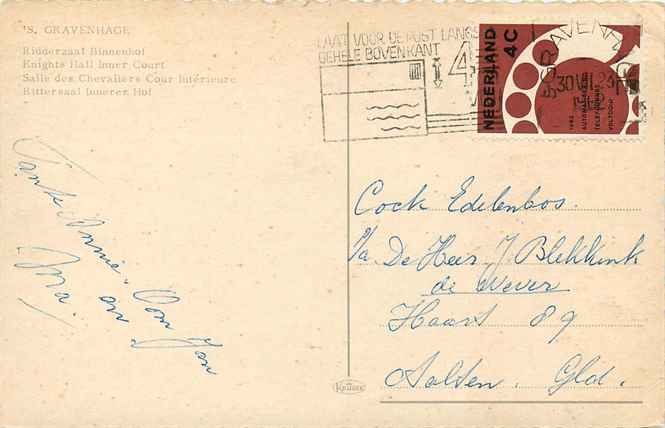 'S. GRAVENHAGE
Ridderzaal Binnenhof
Knights Hall Inner Court
Salle des Chevaliers Cour Intérieure
Rittersaal Innerer Hof
LAAT VOOR DE POST LANGS
GEHELE BOVENKANT
4
'S GRAVENHAGE
30 VII
NEDERLAND
4C
1962
AUTOMATISERING
TELEFOONNET
VOLTOOID
Tante Annie. Oom Jan
en
Ina.
Cock Edelenbos.
p/a De Heer J. Blekkink
de Wever
Haart 89
Aalten. Gld.
Krüger